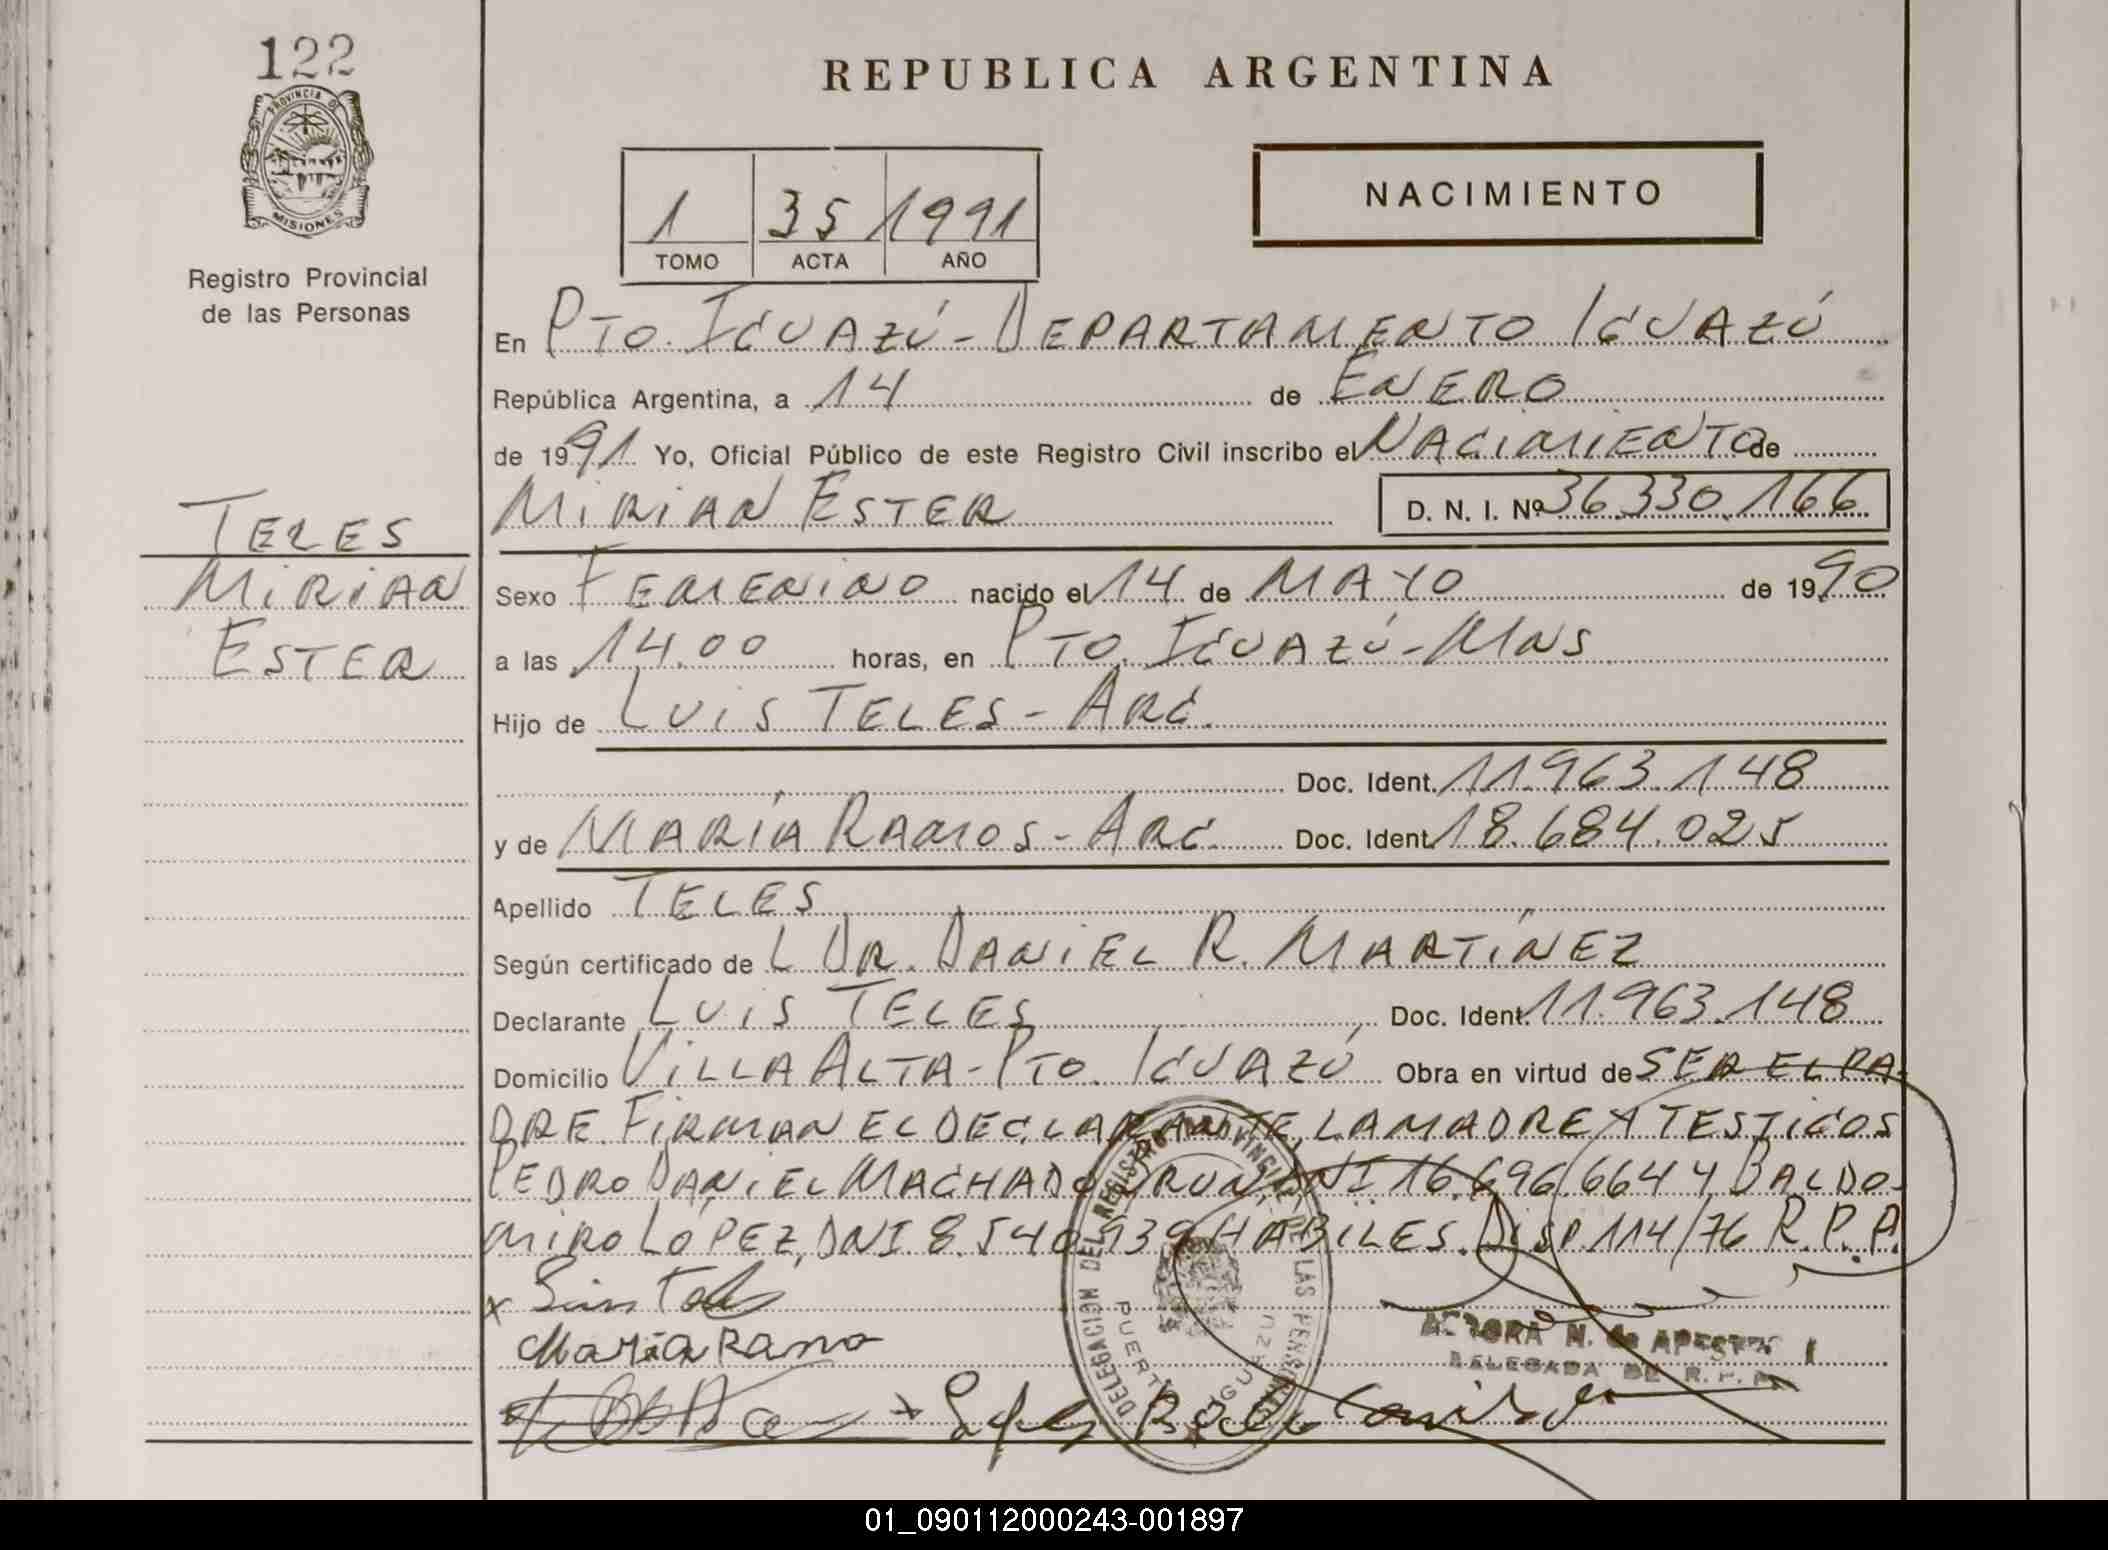 122
PROVINCIA DE
MISIONES
Registro Provincial
de las Personas
TELES
MIRIAN
ESTER
REPUBLICA ARGENTINA
1 35 1991
TOMO ACTA AÑO
NACIMIENTO
En PTO. IGUAZÚ - DEPARTAMENTO IGUAZÚ
República Argentina, a 14 de ENERO
de 1991 Yo, Oficial Público de este Registro Civil inscribo el NACIMIENTO de
MIRIAN ESTER D. N. I. Nº 36.330.166
Sexo FEMENINO nacido el 14 de MAYO de 1990
a las 14.00 horas, en PTO. IGUAZÚ - MNS
Hijo de LUIS TELES - ARG.
Doc. Ident. 11.963.148
y de MARÍA RAMOS - ARG. Doc. Ident. 18.684.025
Apellido TELES
Según certificado de L DR. DANIEL R. MARTÍNEZ
Declarante LUIS TELES Doc. Ident. 11.963.148
Domicilio VILLA ALTA - PTO. IGUAZÚ Obra en virtud de SER EL PA-
DRE. FIRMAN EL DECLARANTE, LA MADRE Y TESTIGOS
PEDRO DANIEL MACHADO BRUN, DNI 16.696.664 Y BALDO-
MIRO LÓPEZ, DNI 8.540.939 HÁBILES. DISP. 114/76 R.P.P.
x Luis Teles
Maria Ramo
DELEGACION DEL REGISTRO PROVINCIAL DE LAS PERSONAS
PUERTO IGUAZU
AURORA N. de
DELEGADA DE R. P. P.
01_090112000243-001897